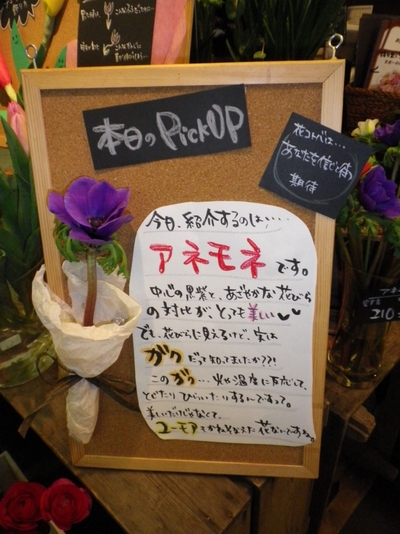 本日のPickUP
花コトバは…
あなたを信じて待つ
期待
今日、紹介するのは、…
アネモネです。
中心の黒紫と、あざやかな花びら
の対比が、とっても美しい
でも、花びらに見えるけど、実は
ガクだって知ってましたか??!
このガク…光や温度に反応して、
とじたり ひらいたりするんですって。
美しいだけじゃなくて、
ユーモアもかねそなえた花なんですねぇ。
210